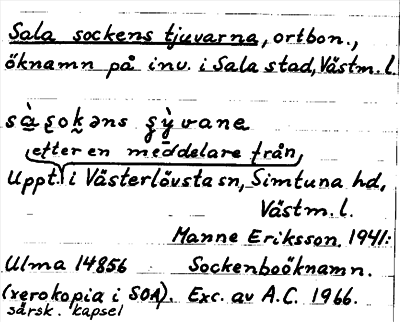 Sala sockens tjuvarna, ortbon.,
öknamn på inv. i Sala stad, Västm. l.
sà̱ʂok̬əns ʂỳvane
efter en meddelare från
Uppt. i Västerlövsta sn, Simtuna hd,
Västm. l.
Manne Eriksson 1941:
Ulma 14856 Sockenboöknamn.
(xerokopia i SOA). Exc. av A.C. 1966.
särsk. kapsel